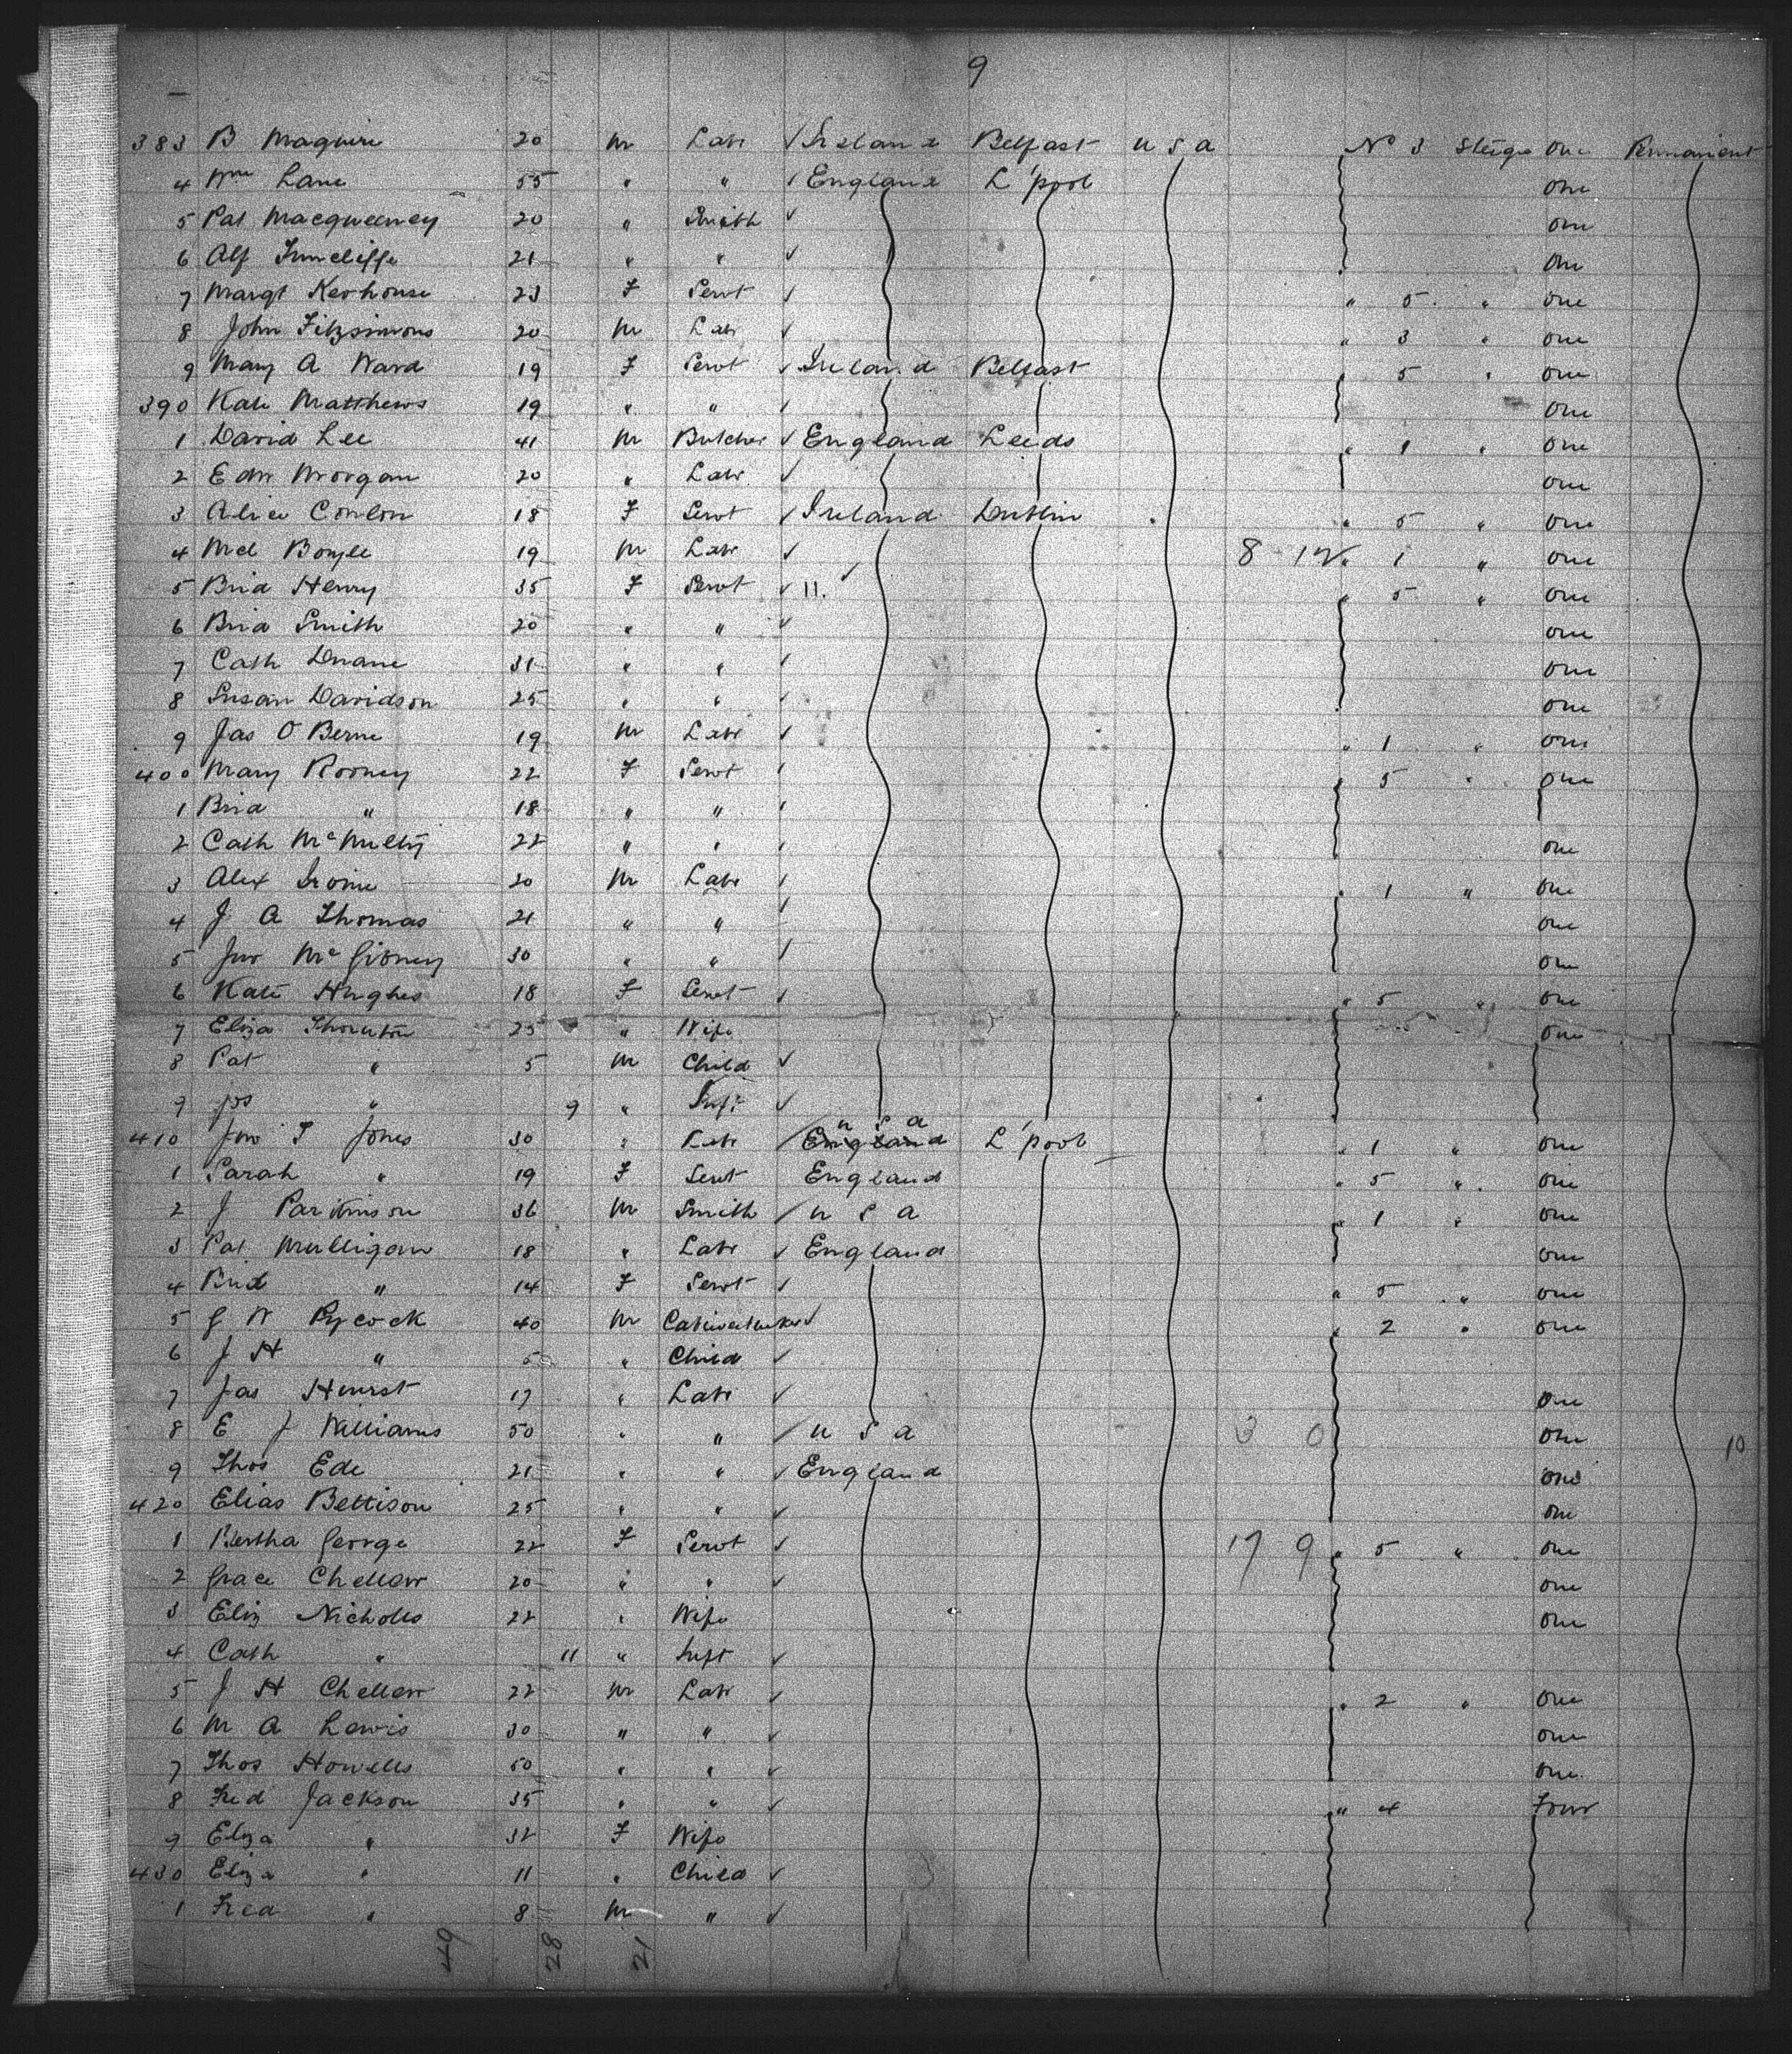 9
383 B Maguire 20 M Labr ✓ Ireland Belfast U S A No 3 Steige One Permanent
4 Wm Lane 55 " " ✓ England L'pool One
5 Pat Macqueeney 20 " Smith ✓ One
6 Alf 21 " " ✓ One
7 Margt 23 F Servt ✓ " 5 " One
8 John Fitzsimons 20 M Labr ✓ " 3 " One
9 Mary A Ward 19 F Servt ✓ Ireland Belfast " 5 " One
390 Kate Matthews 19 " " ✓ One
1 David Lee 41 M Butcher ✓ England Leeds " 1 " One
2 Edw Morgan 20 " Labr ✓ One
3 Alice Conlon 18 F Servt ✓ Ireland Dublin " 5 " One
4 Mcl Boyle 19 M Labr ✓ 8 12 " 1 " One
5 Brid Henry 35 F Servt ✓ 11. ✓ " 5 " One
6 Brid Smith 20 " " ✓ One
7 Cath Duane 31 " " ✓ One
8 Susan Davidson 25 " " ✓ One
9 Jas O Berne 19 M Labr ✓ " 1 " One
400 Mary Rooney 22 F Servt ✓ " 5 " One
1 Brid " 18 " " ✓
2 Cath McNulty 22 " " ✓ One
3 Alex Irvine 20 M Labr ✓ " 1 " One
4 J A Thomas 21 " " ✓ One
5 Jno McGibney 30 " " ✓ One
6 Kate Hughes 18 F Servt ✓ " 5 " One
7 Eliza Thornton 25 " Wife One
8 Pat " 5 M Child ✓
9 Jos " 9 " Inft ✓
410 Jno T Jones 30 " Labr ✓ England U S A L'pool " 1 " One
1 Sarah " 19 F Servt England " 5 " One
2 J Parkinson 36 M Smith ✓ U S A " 1 " One
3 Pat Mulligan 18 " Labr ✓ England One
4 Brid " 14 F Servt ✓ " 5 " One
5 G W Pycock 40 M Cabinetmaker ✓ " 2 " One
6 J H " 5 " Child ✓
7 Jas Hurst 17 " Labr ✓ One
8 E J Williams 50 " " ✓ U S A 3 0 One 10
9 Thos Ede 21 " " ✓ England One
420 Elias Bettison 25 " " ✓ One
1 Bertha George 22 F Servt ✓ 17 9 " 5 " One
2 Grace Chellew 20 " " ✓ One
3 Eliz Nicholls 22 " Wife One
4 Cath " 11 " Inft ✓
5 J H Chellew 22 M Labr ✓ " 2 " One
6 M A Lewis 30 " " ✓ One
7 Thos Howells 50 " " ✓ One
8 Fred Jackson 35 " " ✓ " 4 Four
9 Eliza " 32 F Wife
430 Eliza " 11 " Child ✓
1 Fred " 8 M " ✓
49 28 21